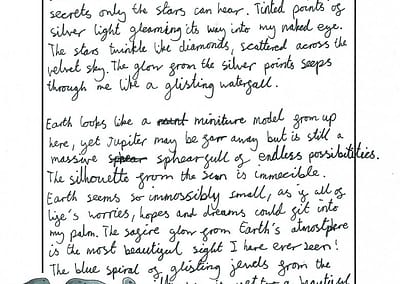 secrets only the stars can hear. Tinted points of
silver light gleaming its way into my naked eye.
The stars twinkle like diamonds, scattered across the
velvet sky. The glow from the silver points seeps
through me like a glisting waterfall.
Earth looks like a miniture model from up
here, yet Jupiter may be farr away but is still a
massive sphear full of endless possibitities.
The silhouette from the sun is immecible.
Earth seems so immossibly small, as if all of
life's worries, hopes and dreams could fit into
my palm. The safire glow from Earth's atmostphere
is the most beautiful sight I here ever seen!
The blue spiral of glisting jewels from the
a beautiful